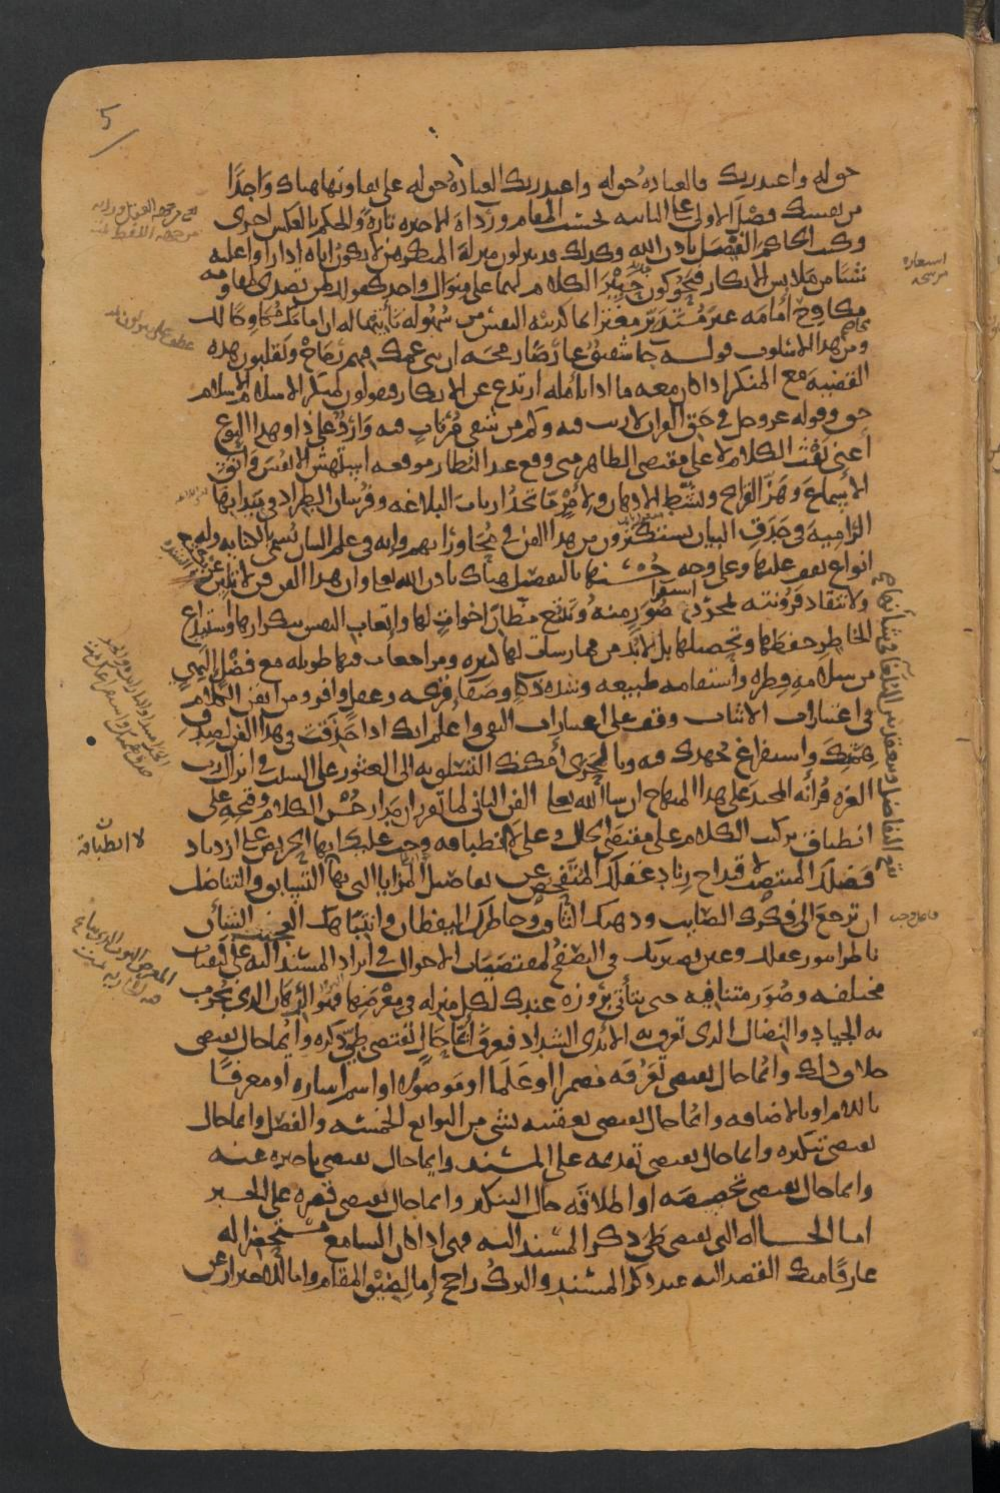 5
حق له واعبد ربك فالعبادة حق له واعبد ربك العبادة حق له على تفاوتها هناك واجدا
من نفسك فضل الاولى على الثانية بحسب المقام ورداءة الاخيرة تارة والحكم بالعكس اخرى
وكنت الحاكم الفيصل باذن الله وكذلك قد ينزلون منزلة المنكر من لا يكون اياه اذا راوا عليه
شيئا من ملابس الانكار فيحوكون حبير الكلام لهما على منوال واحد كقولك لمن تصدى لمقاومة
مكاوح امامه غير متدبر مغترا بما كذبته النفس من سهولة تاتيها له ان امامك مكاوحا لك
ومن هذا الاسلوب قوله جاء شقيق عارضا رمحه ان بني عمك فيهم رماح ويقلبون هذه
القضية مع المنكر اذا كان معه ما اذا تامله ارتدع عن الانكار فيقولون لمنكر الاسلام الاسلام
حق وقوله عز وجل في حق القران لا ريب فيه وكم من شقي مرتاب فيه وارد على ذا وهذا النوع
اعني نفث الكلام لا على مقتضى الظاهر متى وقع عند النظار موقعه استهش الانفس وانق
الاسماع وهز القرائح ونشط الاذهان ولامر ما تجد ارباب البلاغة وفرسان الطراد في ميدانها
الرامية في حدق البيان يستكثرون من هذا الفن في محاوراتهم وانه في علم البيان يسمى الكناية وله
انواع تقف عليها وعلى وجه حسنها بالتفصيل هناك باذن الله تعالى وان هذا الفن فن لا تلين عريكته
ولا تنقاد قرونته لمجرد استقراء صور منه وتتبع مظان اخوات لها واتعاب النفس بتكرارها واستيداع
الخاطر حفظها وتحصيلها بل لا بد من ممارسات لها كثيرة ومراجعات فيها طويلة مع فضل الهي
من سلامة فطرة واستقامة طبيعة وشدة ذكاء وصفاء قريحة وعقل وافر ومن اتقن الكلام
في اعتبارات الاثبات وقف على اعتبارات النفي واعلم انك اذا حذقت في هذا الفن لصدق
همتك واستفراغ جهدك فيه وبالحرى امكنك التسلق به الى العثور على السبب في انزال رب
العزة قرانه المجيد على هذا المنهاج ان شاء الله تعالى الفن الثاني لما تقرر ان مدار حسن الكلام وقبحه على
انطباق تركيب الكلام على مقتضى الحال وعلى لا انطباقه وجب عليك ايها الحريص على ازدياد
فضلك المنتصب لاقتداح زناد عقلك المتفحص عن تفاصيل المزايا التي بها التسابق والتناضل
ان ترجع الى فكرك الصايب وذهنك الثاقب وخاطرك اليقظان وانتباهك العجيب الشان
ناظرا بنور عقلك وعين بصيرتك في التصفح لمقتضيات الاحوال في ايراد المسند اليه على كيفيات
مختلفة وصور متنافية حتى يتاتى بروزه عندك لكل منزلة في معرضها فهو الرهان الذي يجرب
به الجياد والنضال الذي تعرف به الايدي الشداد فتعرف ايما حال تقتضي طي ذكره وايما حال تقتضي
خلاف ذلك وايما حال تقتضي تعرفه مضمرا او علما او موصولا او اسم اشارة او معرفا
باللام او بالاضافة وايما حال تقتضي تعقيبه بشيء من التوابع الخمسة والفصل وايما حال
تقتضي تنكيره وايما حال تقتضي تقديمه على المسند وايما حال تقتضي تاخيره عنه
وايما حال تقتضي تخصيصه او اطلاقه حال التنكير وايما حال تقتضي قصره على الخبر
اما الحالة التي تقتضي طي ذكر المسند اليه فهي اذا كان السامع مستحضرا له
عارفا منك القصد اليه عند ذكر المسند والترك راجح اما لضيق المقام واما للاحتراز عن
استعارة
مرشحة
لا انطباقه
فاعل وجب